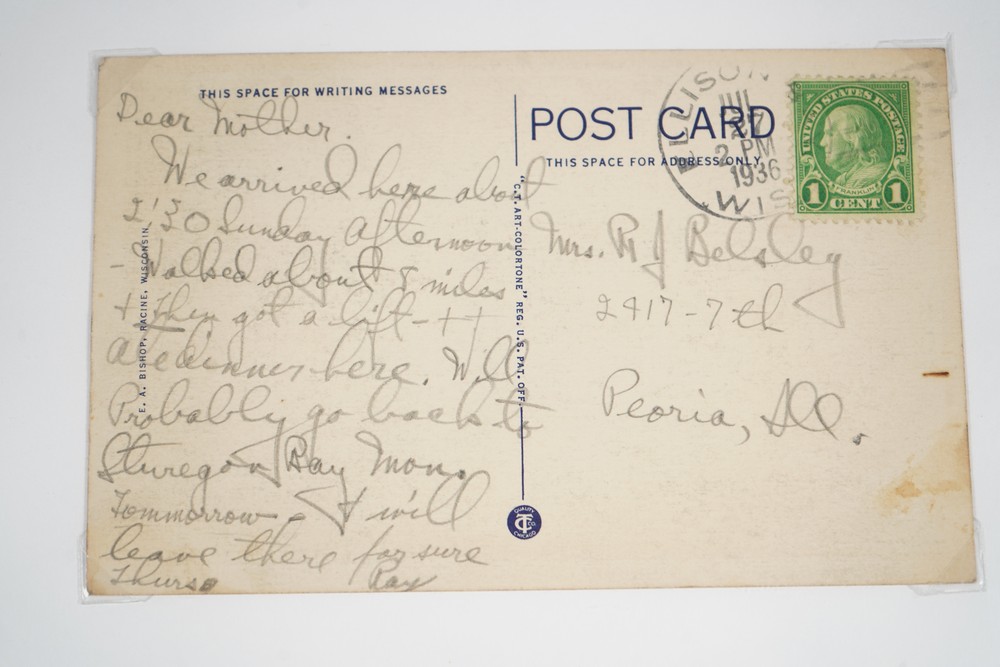 THIS SPACE FOR WRITING MESSAGES
Dear Mother.
We arrived here about
2:30 Sunday Afternoon
- Walked about 8 miles
+ then got a lift - ++
Ate dinner here. Will
Probably go back to
Sturegon Bay Mon.
Tommorrow - I will
leave there for sure
Thurs. Ray
E. A. BISHOP, RACINE, WISCONSIN.
"C.T. ART-COLORTONE" REG. U.S. PAT. OFF.
QUALITY
CT CO
CHICAGO
POST CARD
THIS SPACE FOR ADDRESS ONLY
ELLISON
JUL
27
2 PM
1936
WIS.
UNITED STATES POSTAGE
FRANKLIN
1 CENT 1
Mrs. R J Belsley
2417-7th
Peoria, Ill.